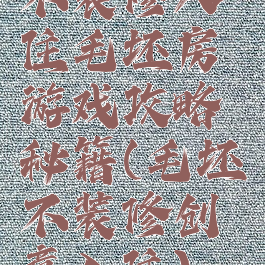 不装修入
住毛坯房
游戏攻略
秘籍(毛坯
不装修创
意入住)